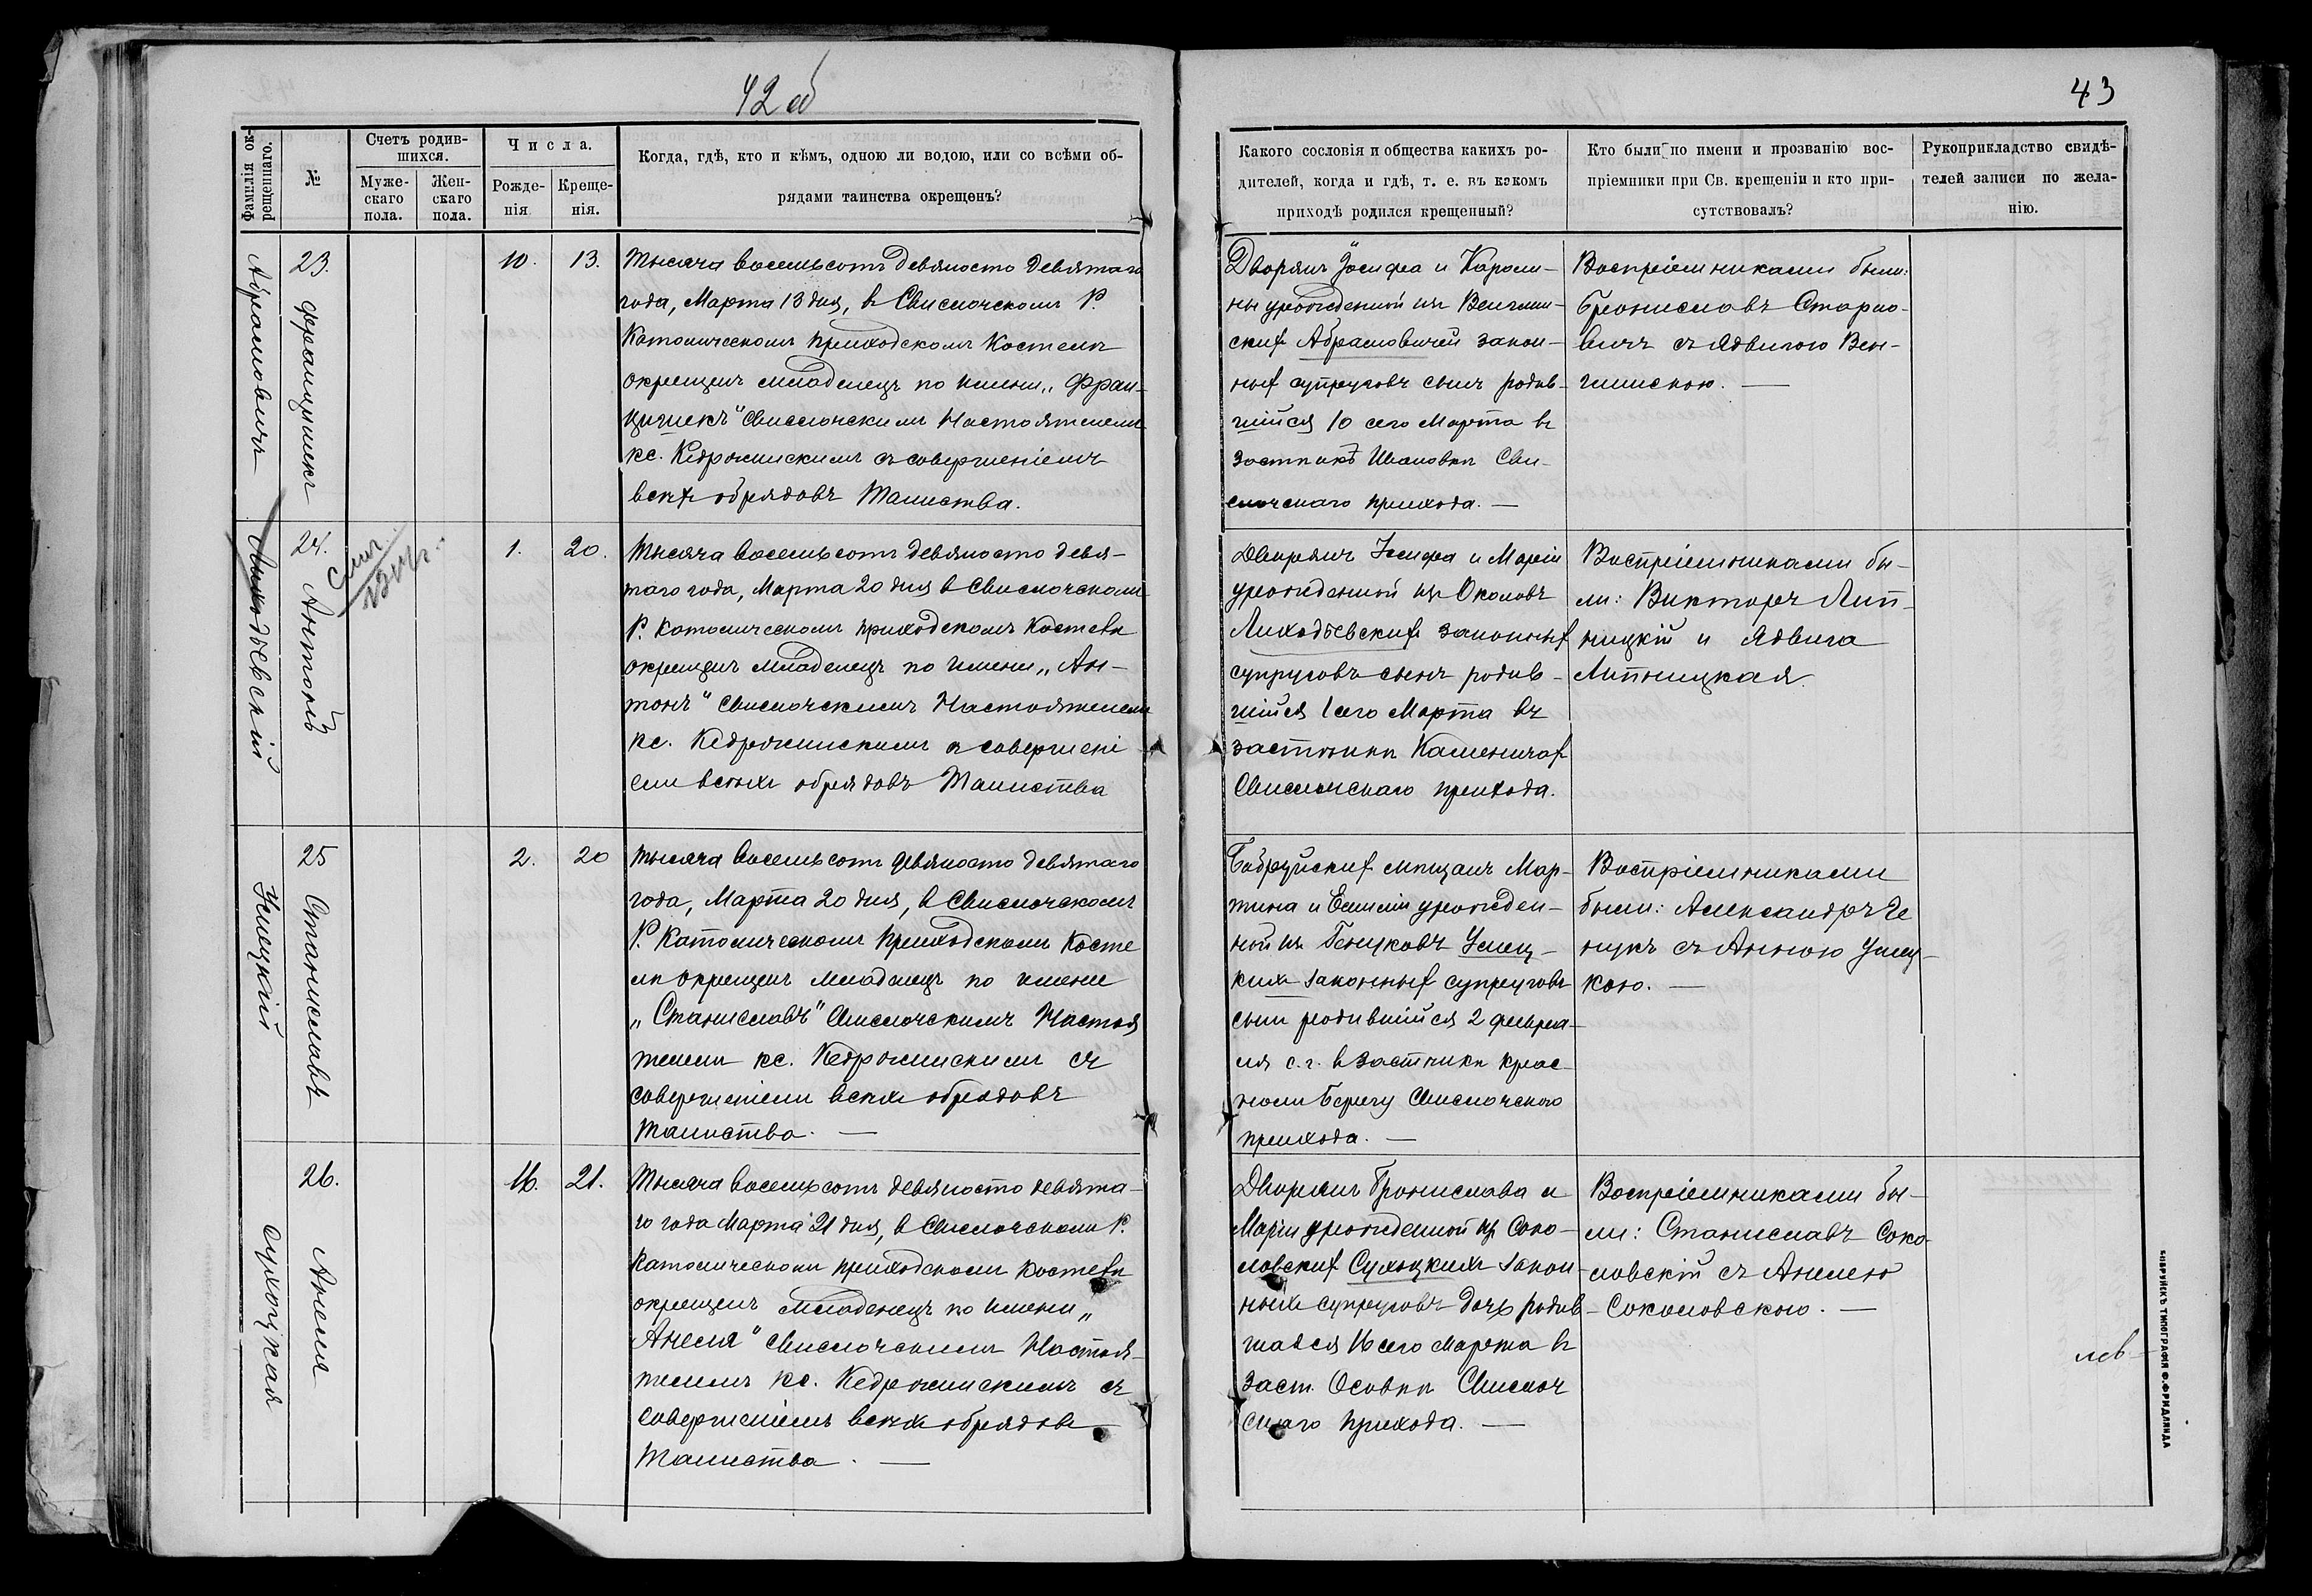 42 об
43
Фамилія ок-
рещеннаго.
№
Счетъ родив-
шихся.
Муже-
скаго
пола.
Жен-
скаго
пола.
Числа.
Рожде-
нія
Креще-
нія.
Когда, гдѣ, кто и кѣмъ, одною ли водою, или со всѣми об-
рядами таинства окрещенъ?
Какого сословія и общества какихъ ро-
дителей, когда и гдѣ, т. е. въ какомъ
приходѣ родился крещенный?
Кто были по имени и прозванію вос-
пріемники при Св. крещеніи и кто при-
сутствовалъ?
Рукоприкладство свидѣ-
телей записи по жела-
нію.
Абрамовичъ
23.
Францишекъ
10.
13.
Тысяча восемьсотъ девяносто девятаго
года, Марта 13 дня, въ Свислочскомъ Р.
Католическомъ приходскомъ Костелѣ
окрещенъ младенецъ по имени „Фран-
цишекъ" Свислочскимъ Настоятелемъ
кс. Кедржинскимъ съ совершеніемъ
всѣхъ обрядовъ Таинства.
Дворянъ Іосифа и Кароли-
ны урожденной изъ Венглин-
скихъ Абрамовичей закон-
ныхъ супруговъ сынъ родив-
шійся 10 сего Марта въ
застѣнкѣ Ивановкѣ Сви-
слочскаго прихода. —
Воспріемниками были:
Брониславъ Старно-
вичъ съ Ядвигою Вен-
глинскою. —
Лиходѣевскій
24.
Антонъ
1.
20.
Тысяча восемьсотъ девяносто девя-
таго года, Марта 20 дня въ Свислочскомъ
Р. Католическомъ приходскомъ Костелѣ
окрещенъ младенецъ по имени „Ан-
тонъ" Свислочскимъ Настоятелемъ
кс. Кедржинскимъ съ совершені
емъ всѣхъ обрядовъ Таинства
Дворянъ Іосифа и Маріи
урожденной изъ Околовъ
Лиходѣевскихъ законныхъ
супруговъ сынъ родив-
шійся 1 сего Марта въ
застѣнкѣ Каменичахъ
Свислочскаго прихода.
Воспріемниками бы-
ли: Викторъ Лип-
ницкій и Ядвига
Липницкая.
Умецкій
25
Станиславъ
2.
20
Тысяча восемьсотъ девяносто девятаго
года, Марта 20 дня, въ Свислочскомъ
Р. Католическомъ приходскомъ Косте
лѣ окрещенъ младенецъ по имени
„Станиславъ" Свислочскимъ Настоя
телемъ кс. Кедржинскимъ съ
совершеніемъ всѣхъ обрядовъ
Таинства. —
Бобруйскихъ мѣщанъ Мар-
тина и Емиліи урожден-
ной изъ Генуковъ Умец-
кихъ законныхъ супруговъ
сынъ родившійся 2 февра-
ля с. г. въ застѣнкѣ Крас-
номъ Берегу Свислочскаго
прихода. —
Воспріемниками
были: Александръ Ге
нукъ съ Анною Умец-
кою. —
Сухоцкая
26.
Анеля
16.
21.
Тысяча восемьсотъ девяносто девята-
го года Марта 21 дня, въ Свислочскомъ Р.
Католическомъ приходскомъ Костелѣ
окрещенъ младенецъ по имени „
Анеля" Свислочскимъ Настоя-
телемъ кс. Кедржинскимъ съ
совершеніемъ всѣхъ обрядовъ
Таинства. —
Дворянъ Бронислава и
Маріи урожденной изъ Соко-
ловскихъ Сухоцкихъ закон-
ныхъ супруговъ дочь родив-
шаяся 16 сего Марта въ
заст. Осовкѣ Свислоч
скаго прихода. —
Воспріемниками бы-
ли: Станиславъ Соко-
ловскій съ Анелею
Соколовскою. —
ТИПОГРАФІЯ Ф. ФРИДЛЯНДА